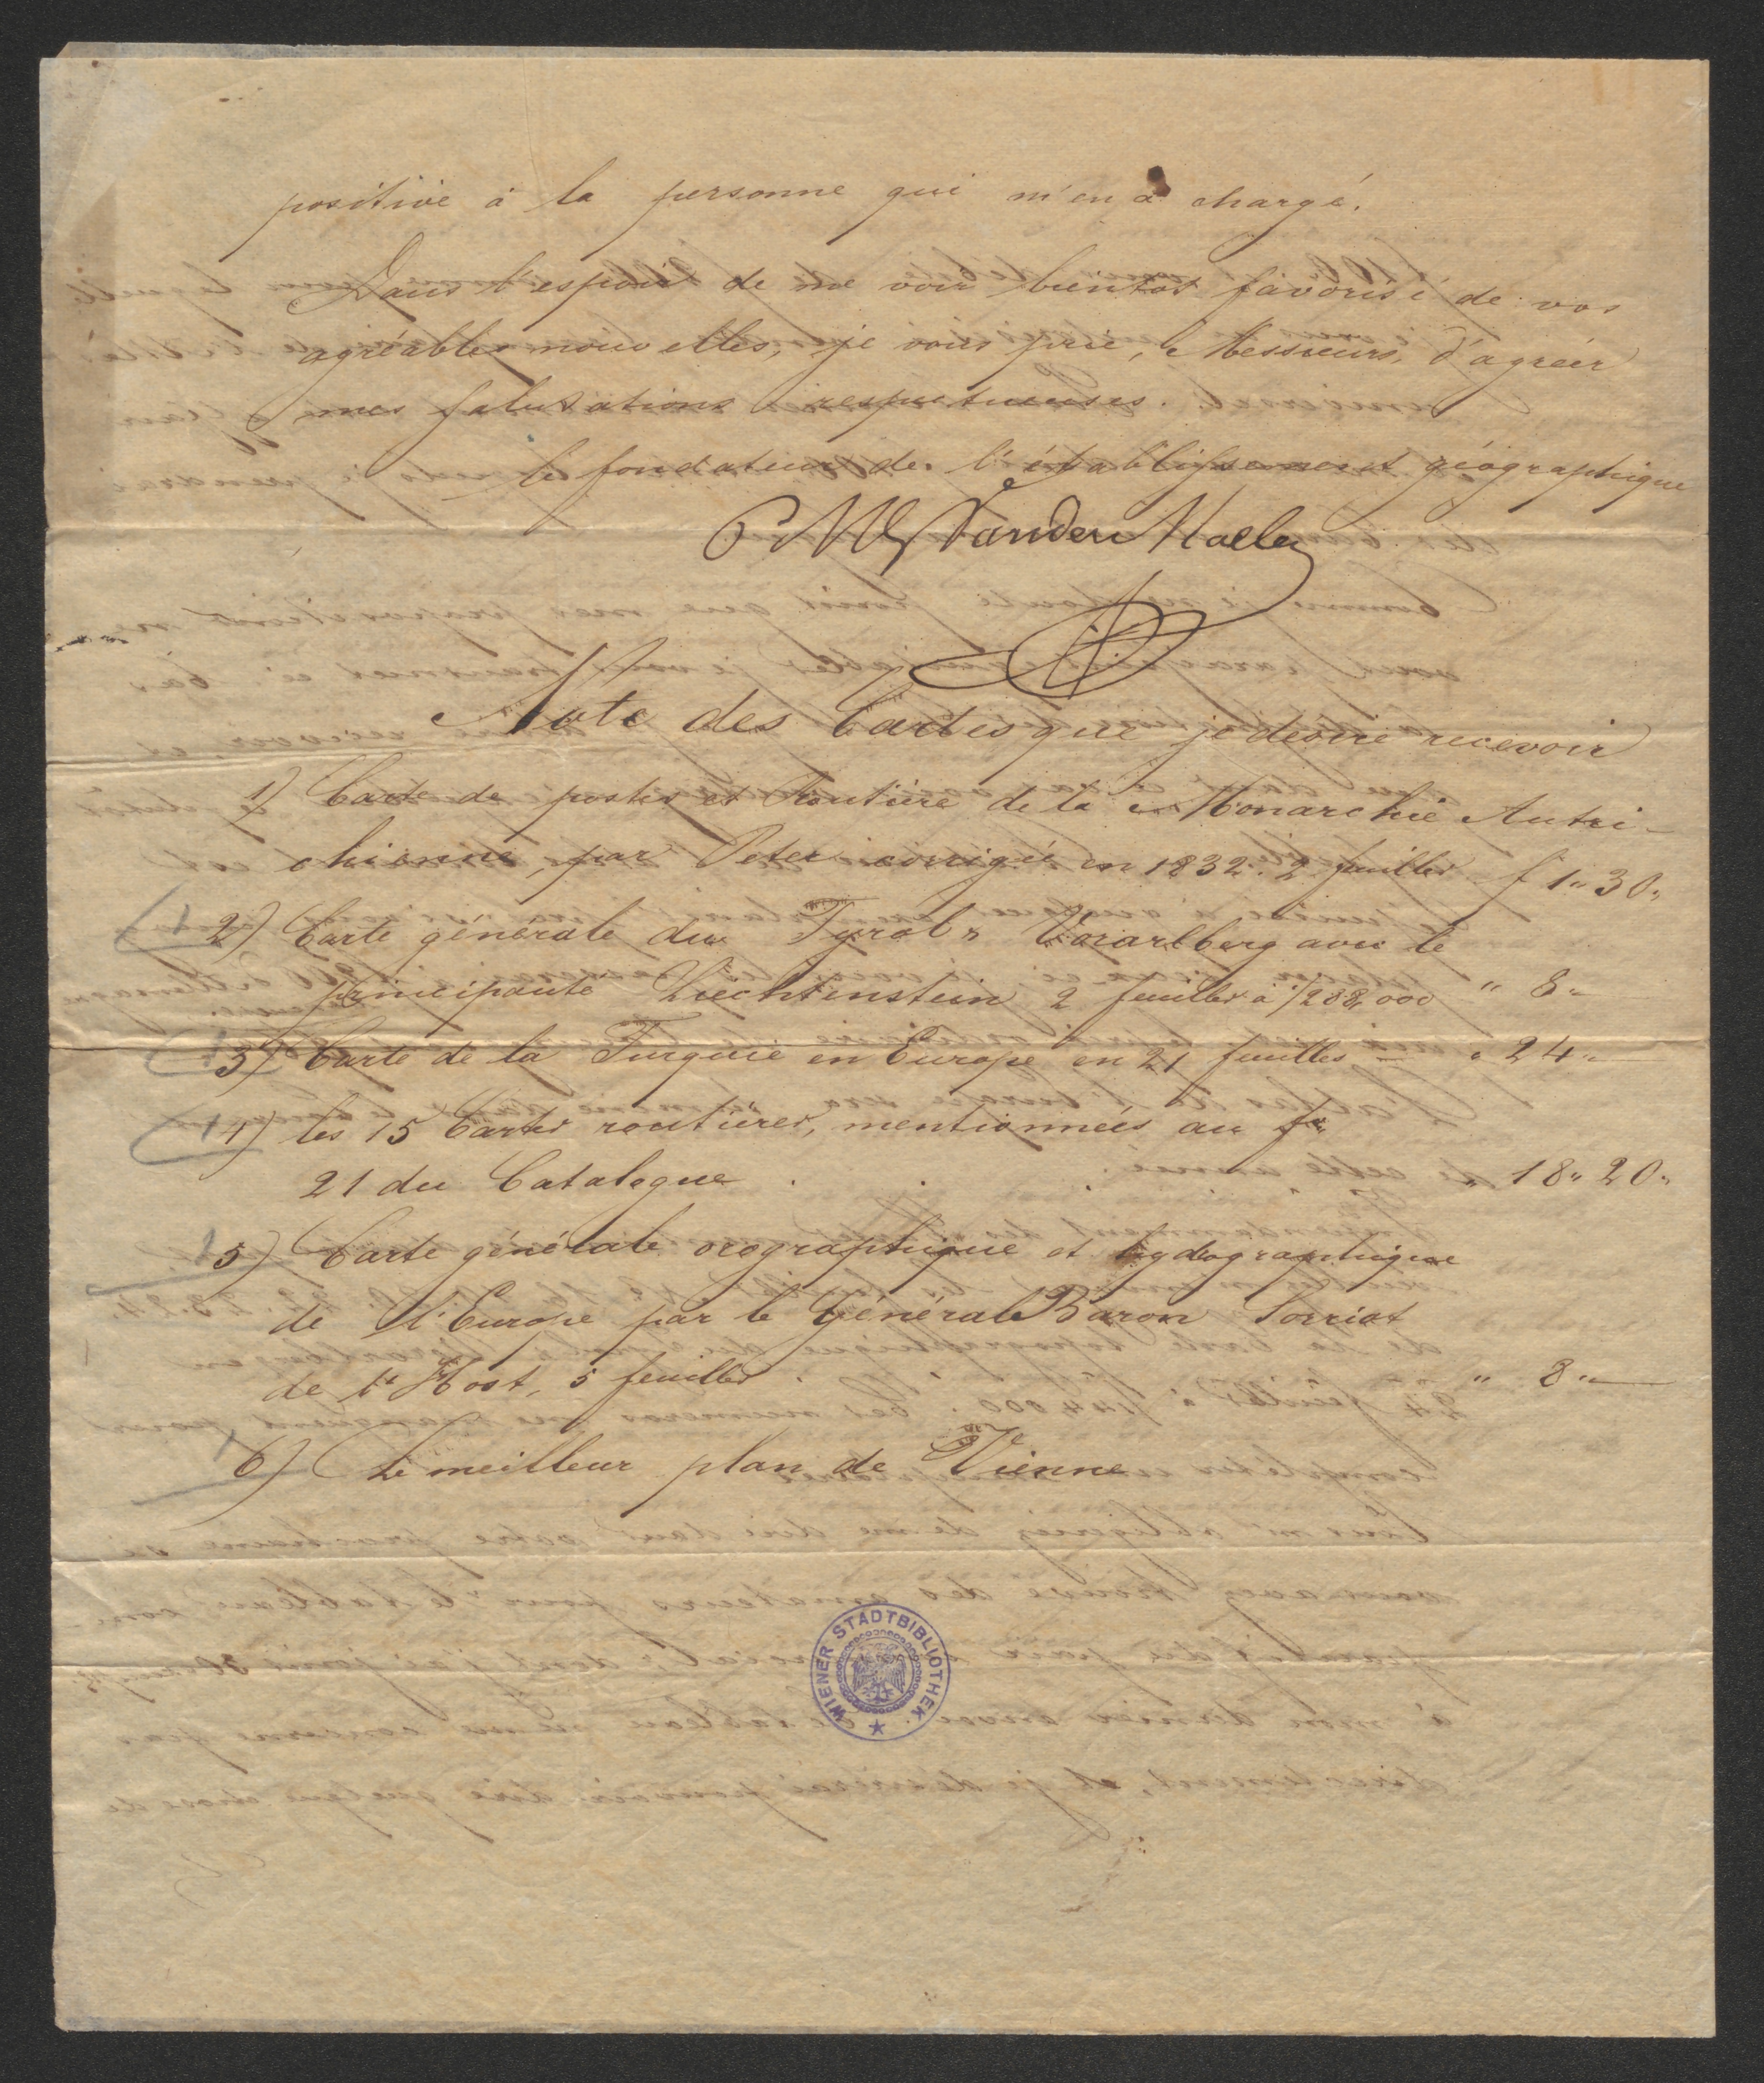 positive à la personne qui m'en a chargé.
Dans l'espoir de me voir bientot favorisé de vos
agréables nouvelles, je vous prie, Messieurs, d'agréer
mes salutations respectueuses.
le fondateur de l'établissement géographique
Ph Vander Maelen
Note des Cartes que je desire recevoir
1) Carte de postes et Routière de la Monarchie Autri-
chienne, par Peter corrigée en 1832. 2 feuilles f 1" 30"
2) Carte générale du Tyrol & Vorarlberg avec le
principauté Liechtinstein 2 feuilles à 1/288,000 " 8"
3) Carte de la Turquie en Europe en 21 feuilles – " 24"—
4) les 15 Cartes routières, mentionnées au
21 du Catalogue . . . " 18" 20"
5) Carte générale orographique et hydographique
de l'Europe par le Général Baron Sorriot
de l'Host, 5 feuilles . " 8"—
6) Le meilleur plan de Vienne
WIENER STADTBIBLIOTHEK